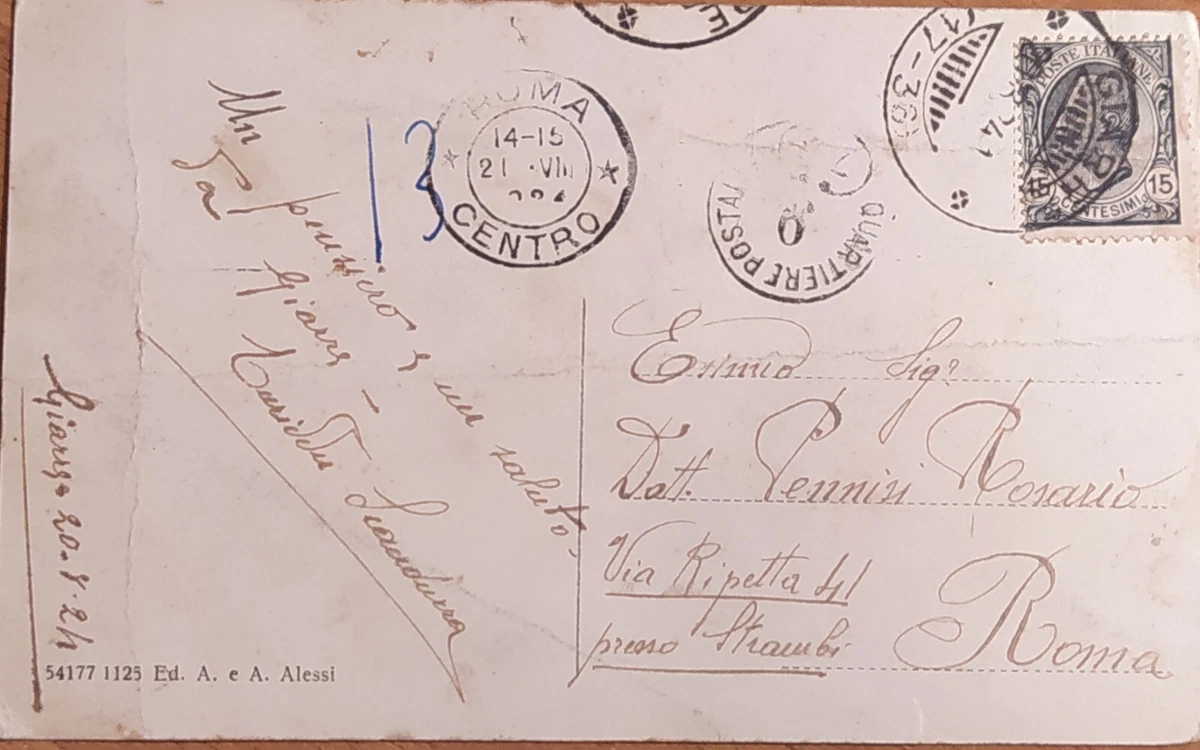 Un pensiero e un saluto.
Da Giarre -
Turiddu Scandurra
Giarre 20.8.24
54177 1125 Ed. A. e A. Alessi
13
ROMA
14-15
21 VIII
CENTRO
QUARTIERE POSTA
17-3
GIARRE
POSTE ITALIANE
15 CENTESIMI 15
Esimio Sigr
Dott. Pennisi Rosario
Via Ripetta 41
presso Strambi
Roma